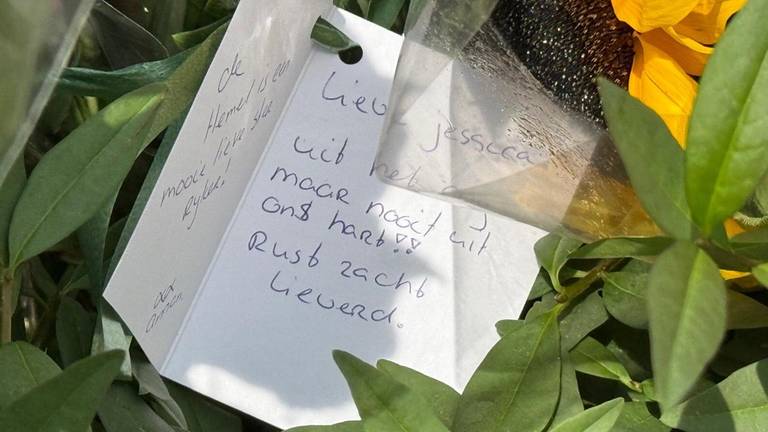 de
Hemel is een
mooie lieve ster
Ryker!
xxx
Lieve jessica
uit het
maar nooit uit
ons hart!!
Rust zacht
lieverd.